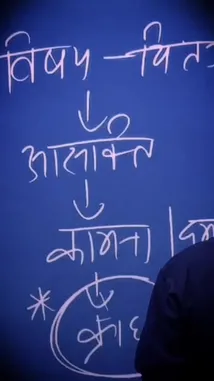 विषय – चिंत
आसक्ति
कामना |
* क्रोध